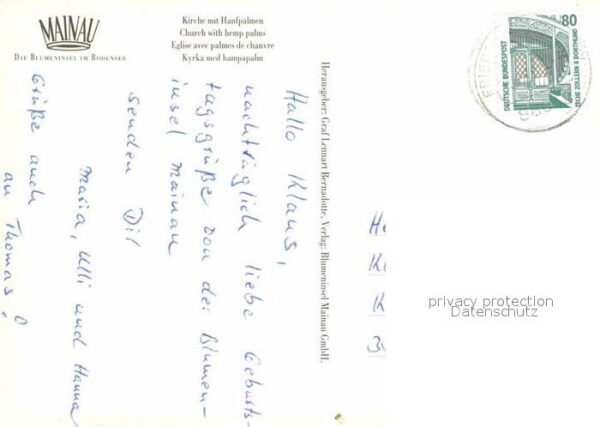 MAINAU
DIE BLUMENINSEL IM BODENSEE
Kirche mit Hanfpalmen
Church with hemp palms
Eglise avec palmes de chanvre
Kyrka med hampapalm
Herausgeber: Graf Lennart Bernadotte, Verlag: Blumeninsel Mainau GmbH.
80
DEUTSCHE BUNDESPOST
ZECHE ZOLLERN II DORTMUND
Hallo Klaus,
nachträglich liebe Geburts-
tagsgrüße von der Blumen-
insel Mainau
senden Dir
Maria, Ulli und Hanna
Grüße auch
an Thomas!
privacy protection
Datenschutz